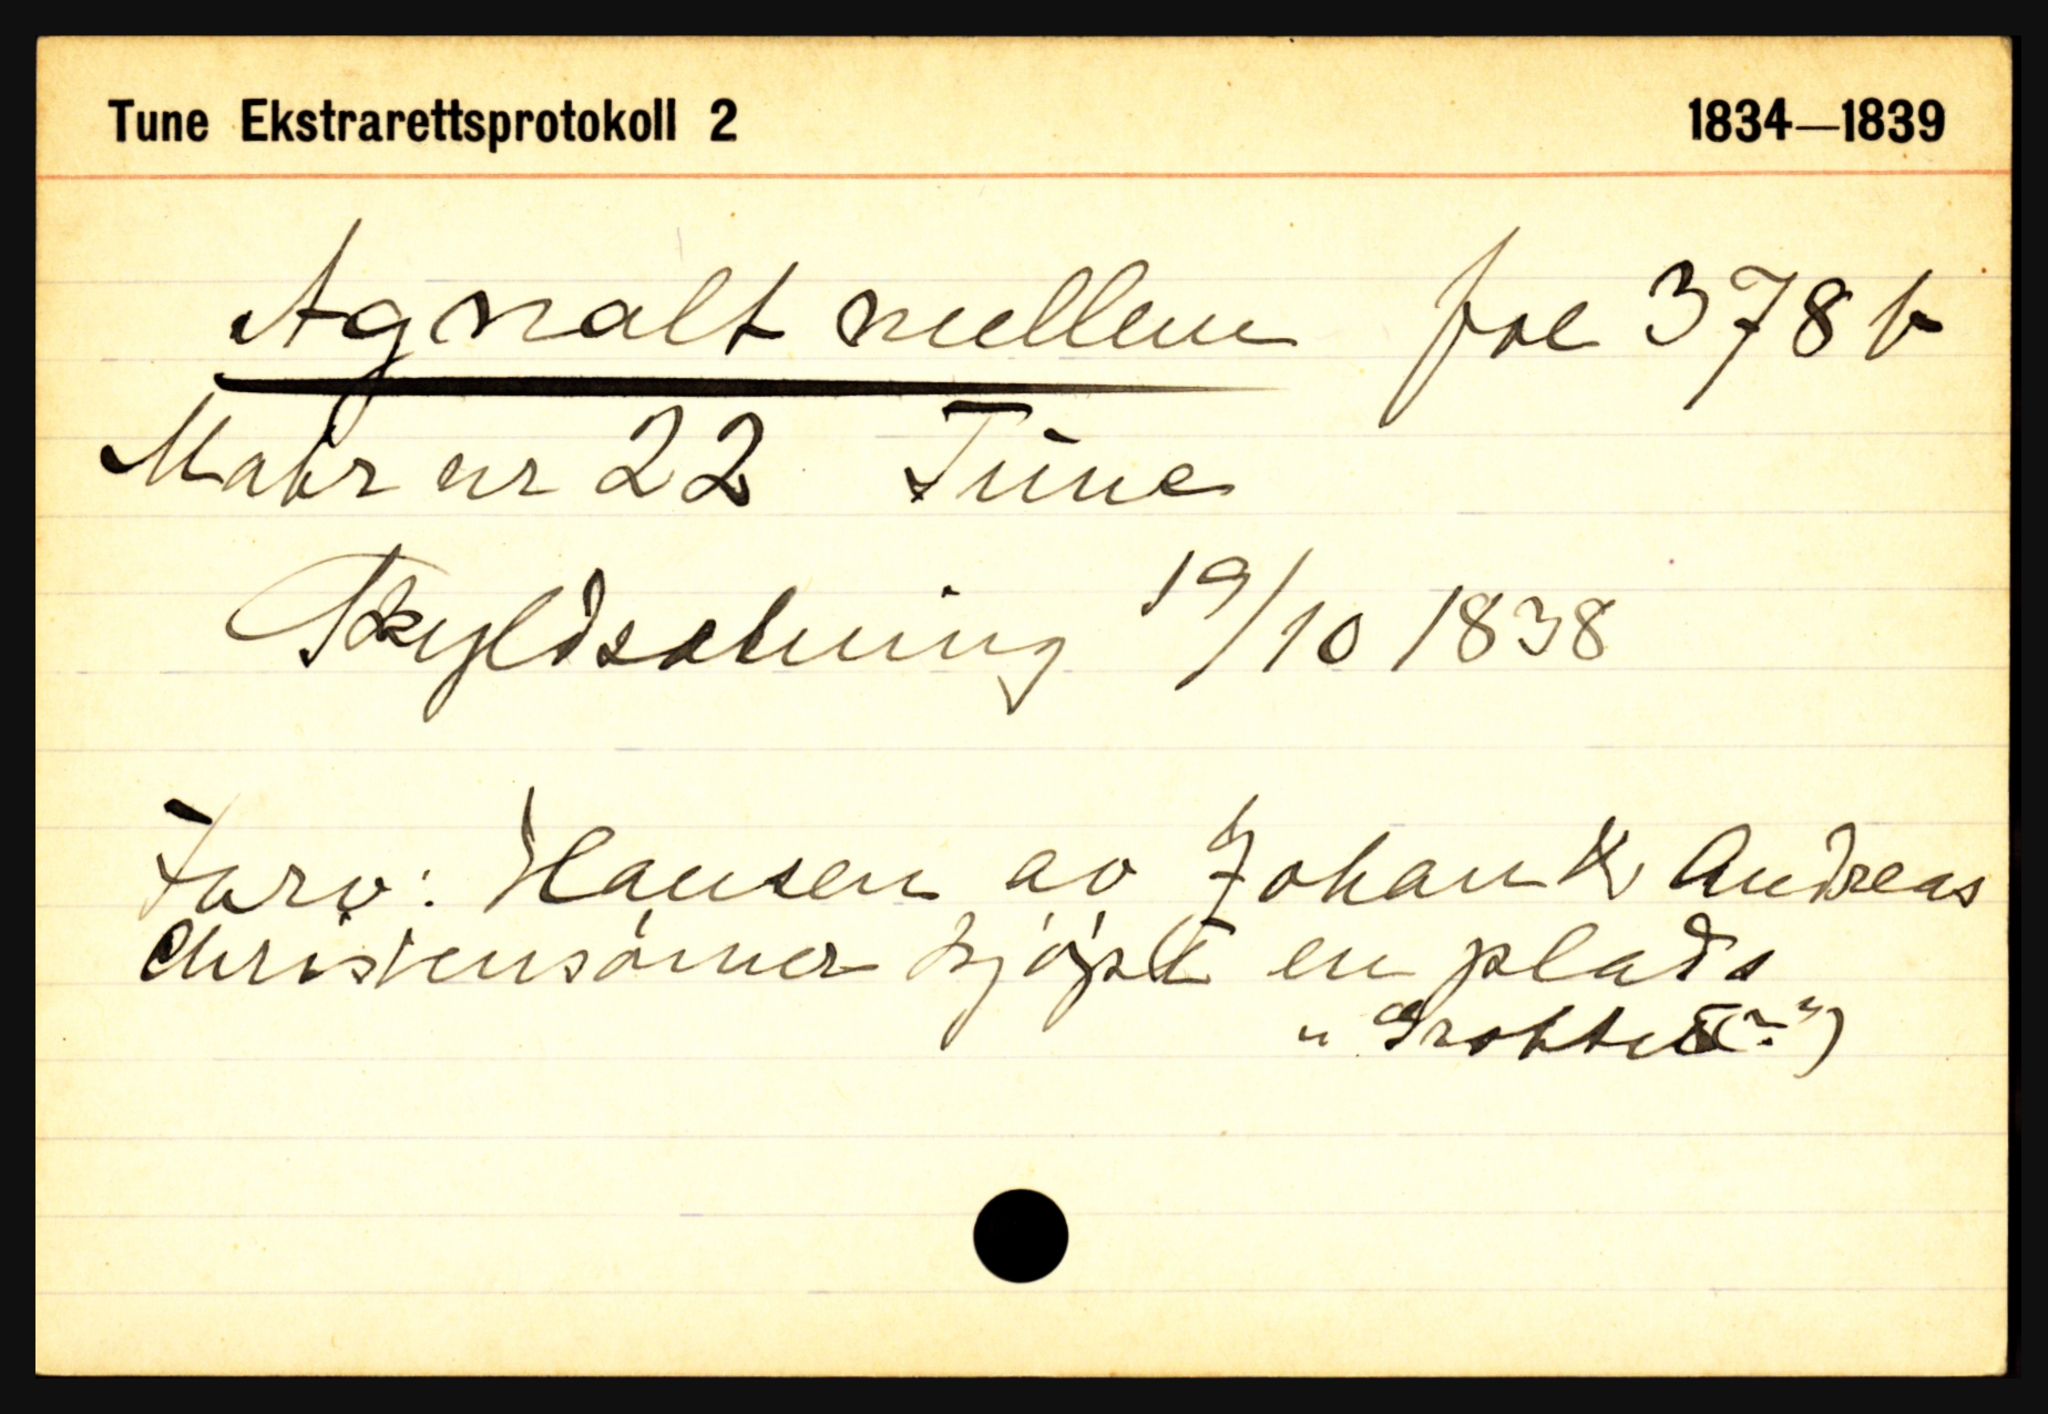 Tune Ekstrarettsprotokoll 2 1834—1839
Agnalt mellem fol 378 b
Matr nr 22 Tune
Skyldsetning 19/10 1838
Tarv: Hansen av Johan & Andreas
Christensönner kjöpt en plads